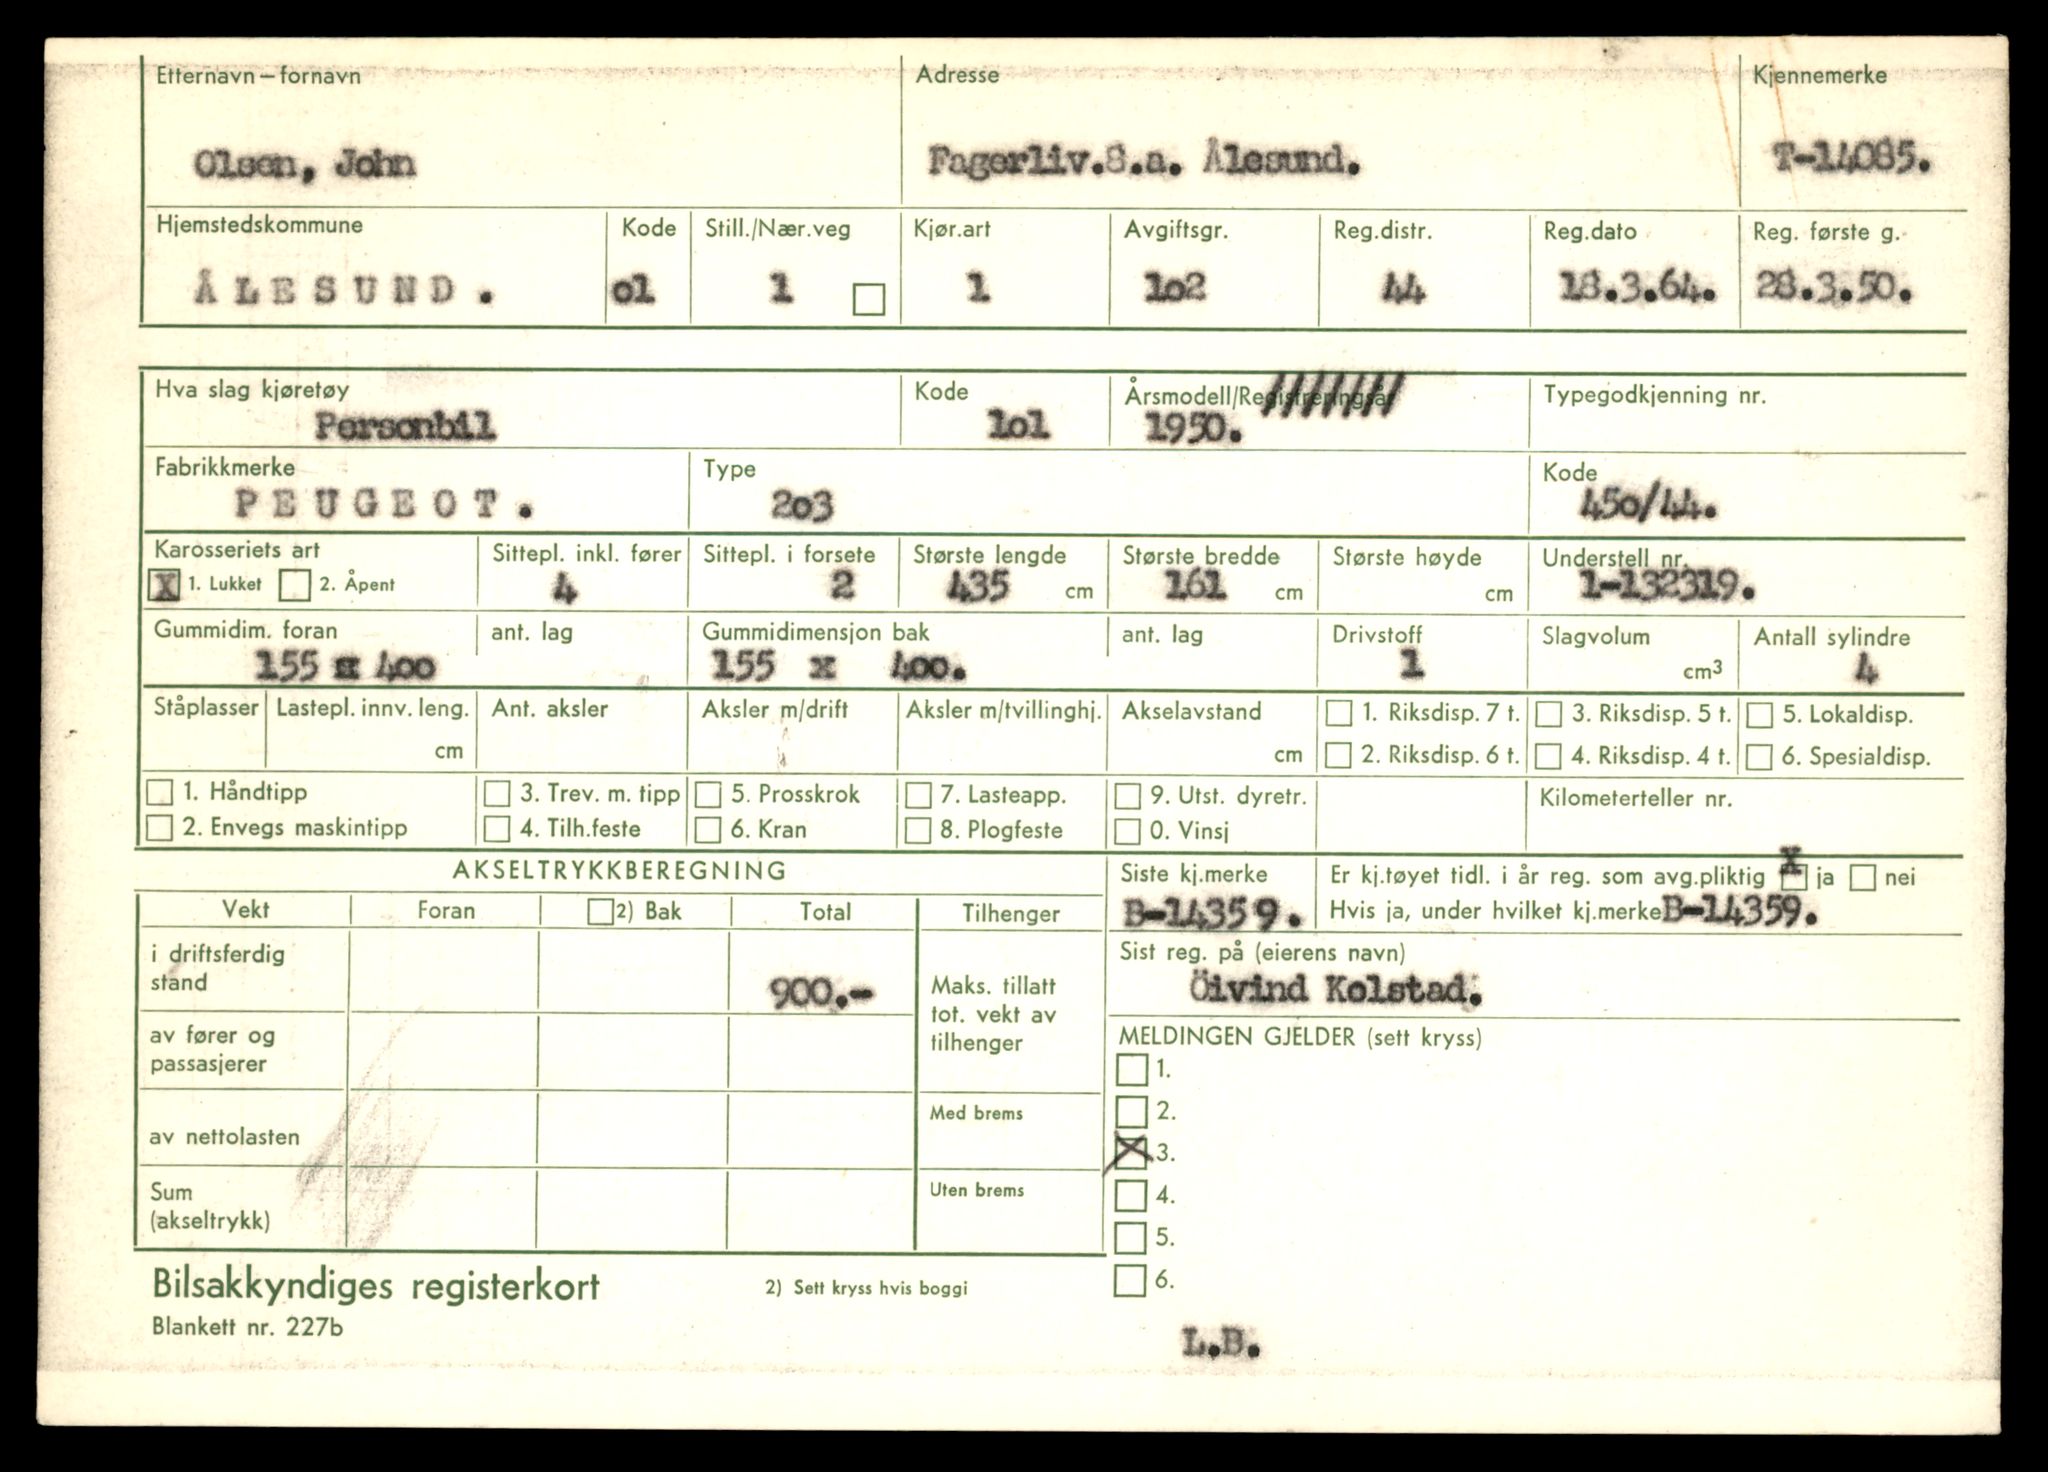 Etternavn—fornavn Adresse Kjennemerke
Olsen, John Fagerliv.S.a. Ålesund. T-14085.
Hjemstedskommune Kode Still./Nær.veg Kjør.art Avgiftsgr. Reg.distr. Reg.dato Reg. første g.
ÅLESUND. o1 1 1 1o2 44 18.3.64. 28.3.50.
Hva slag kjøretøy Kode Årsmodell/Registreringsår Typegodkjenning nr.
Personbil 1o1 1950.
Fabrikkmerke Type Kode
PEUGEOT. 2o3 45o/44.
Karosseriets art Sittepl. inkl. fører Sittepl. i forsete Største lengde Største bredde Største høyde Understell nr.
X 1. Lukket 2. Åpent 4 2 435 cm 161 cm cm 1-132319.
Gummidim. foran ant. lag Gummidimensjon bak ant. lag Drivstoff Slagvolum Antall sylindre
155 x 4oo 155 x 4oo. 1 cm3 4
Ståplasser Lastepl. innv. leng. Ant. aksler Aksler m/drift Aksler m/tvillinghj. Akselavstand 1. Riksdisp. 7 t. 3. Riksdisp. 5 t. 5. Lokaldisp.
cm cm 2. Riksdisp. 6 t. 4. Riksdisp. 4 t. 6. Spesialdisp.
1. Håndtipp 3. Trev. m. tipp 5. Prosskrok 7. Lasteapp. 9. Utst. dyretr. Kilometerteller nr.
2. Envegs maskintipp 4. Tilh.feste 6. Kran 8. Plogfeste 0. Vinsj
AKSELTRYKKBEREGNING Siste kj.merke Er kj.tøyet tidl. i år reg. som avg.pliktig X ja nei
Vekt Foran 2) Bak Total Tilhenger B-14359. Hvis ja, under hvilket kj.merke B-14359.
i driftsferdig Sist reg. på (eierens navn)
stand 900.- Maks. tillatt Öivind Kolstad.
tot. vekt av
av fører og tilhenger MELDINGEN GJELDER (sett kryss)
passasjerer 1.
Med brems 2.
av nettolasten X 3.
Sum Uten brems 4.
(akseltrykk) 5.
Bilsakkyndiges registerkort 2) Sett kryss hvis boggi 6.
Blankett nr. 227b
L.B.